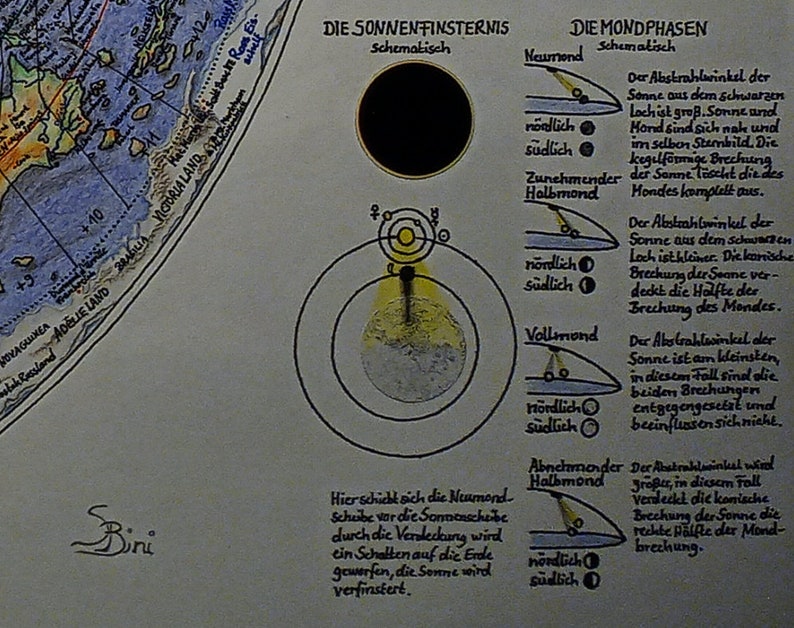 DIE SONNENFINSTERNIS
schematisch
Hier schiebt sich die Neumond-
scheibe vor die Sonnenscheibe
durch die Verdeckung wird
ein Schatten auf die Erde
geworfen, die Sonne wird
verfinstert.
DIE MONDPHASEN
Schematisch
Neumond
nördlich
südlich
Der Abstrahlwinkel der
Sonne aus dem schwarzen
Loch ist groß. Sonne und
Mond sind sich nah und
im selben Sternbild. Die
kegelförmige Brechung
der Sonne löscht die des
Mondes komplett aus.
Zunehmender
Halbmond
nördlich
südlich
Der Abstrahlwinkel der
Sonne aus dem schwarzen
Loch ist kleiner. Die konische
Brechung der Sonne ver-
deckt die Hälfte der
Brechung des Mondes.
Vollmond
nördlich
südlich
Der Abstrahlwinkel der
Sonne ist am kleinsten,
in diesem Fall sind die
beiden Brechungen
entgegengesetzt und
beeinflussen sich nicht.
Abnehmender
Halbmond
nördlich
südlich
Der Abstrahlwinkel wird
größer, in diesem Fall
verdeckt die konische
Brechung der Sonne die
rechte Hälfte der Mond-
brechung.
+12
11
+10
+9
VICTORIALAND
BRAFILIA
ADÉLIE LAND
NOVAGUINEA
Russland
SBini